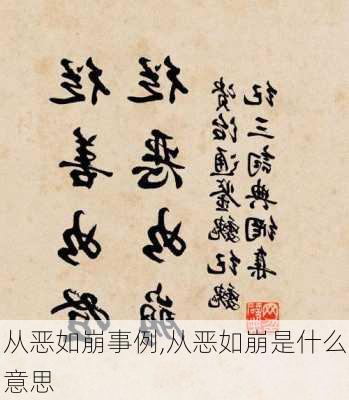 從善如登
從惡如崩
資治通鑒魏紀魏
紀三詞典網集
从恶如崩事例,从恶如崩是什么
意思